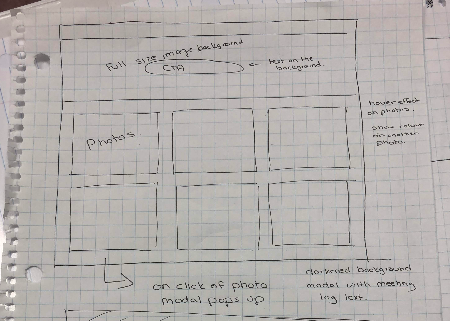 Full size image background
CTA
← text on the
background.
hover effect
on photos.
photo.
Photos
on click of photo
modal pops up
darkened background
modal with
text.